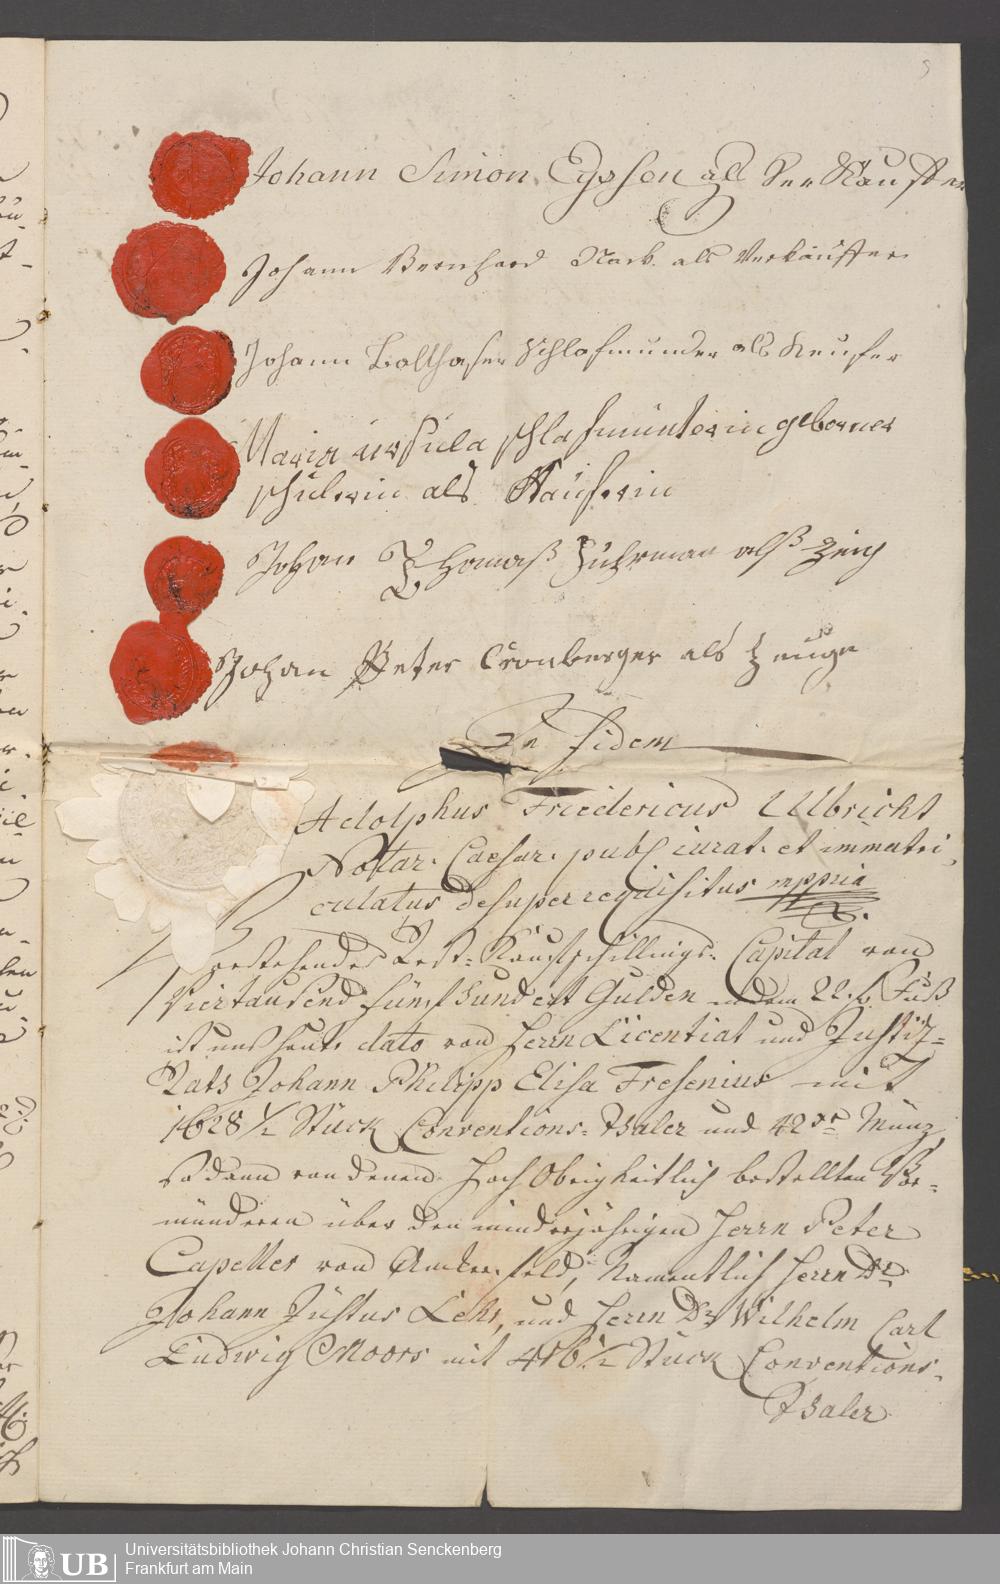 Johann Simon Eyssen als Verkäuffer
Johann Bernhard Nack als Verkäuffer
Johann Balthaser Schlafmünder als Keufer
Maria ursula schlafmünterin geborner
schülerin als Käuferin
Johan Thomaß Fuhrman alß Zeug
Johan Peter Cronberger als Zeuge
In fidem
Adolphus Friedericus Ullbricht
Notar. Caesar. publ. iurat. et immatri
culatus desuper requisitus mppria
Vorstehendes Rest-Kaufschillings-Capital von
Viertausend fünfhundert Gulden in dem 22. f. Fuß
ist uns heute dato von Herrn Licentiat und Justitz-
Rats Johann Philipp Elisa Fresenius mit
1628 1/2 Stück Conventions-Thaler und 42 xr Münz,
sodann von denen Hoch Obrigkeitlich bestellten Vor-
münderen über den minderjährigen Herrn Peter
Capeller von Ankerfeld, Namentlich Herrn Dr.
Johann Justus Lehr, und Herrn Dr. Wilhelm Carl
Ludwig Moors mit 416 1/2 Stück Conventions-
Thaler
UB
Universitätsbibliothek Johann Christian Senckenberg
Frankfurt am Main